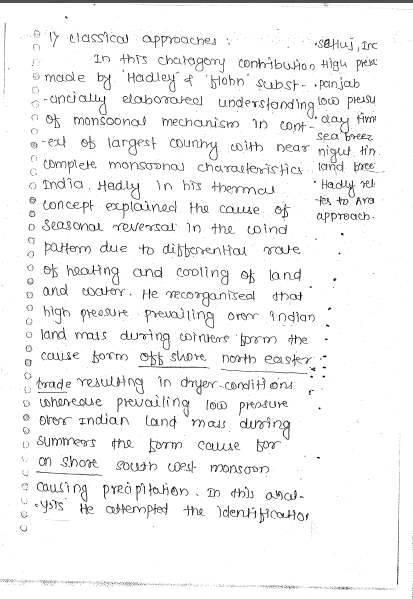 1) classical approaches :
In this chatagory contribution
made by 'Hadley' & 'flohn' subst-
-ancially elaborated understanding
of monsoonal mechanism in cont-
-ext of largest country with near
complete monsoonal characteristics
India. Hadly in his thermal
concept explained the cause of
seasonal reversal in the wind
pattern due to differential rate
of heating and cooling of land
and water. He recorganised that
high pressure prevailing over indian
land mass during winters form the
cause form off shore north easter
trade resulting in dryer-conditions
whereause prevailing low pressure
over Indian land mass during
summers the form cause for
on shore south west monsoon
causing precipitation. In this anal-
-ysis He attempted the identification
High press
• panjab
low pressu
• day tim
sea breez
night tim
land bree
• Hadly rel
tes to Ara
approach.